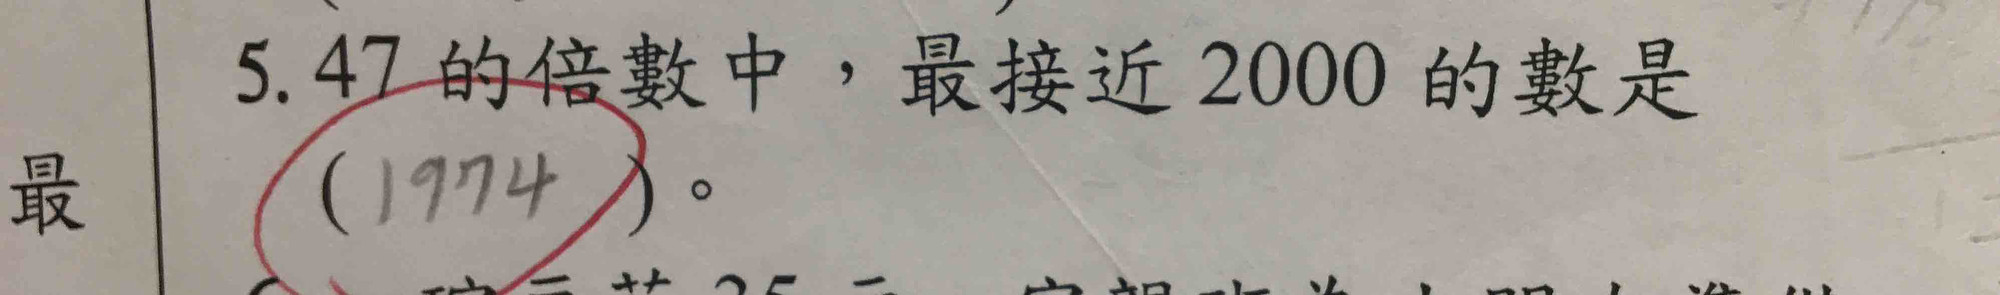 5. 47 的倍數中，最接近 2000 的數是
(1974)。
最